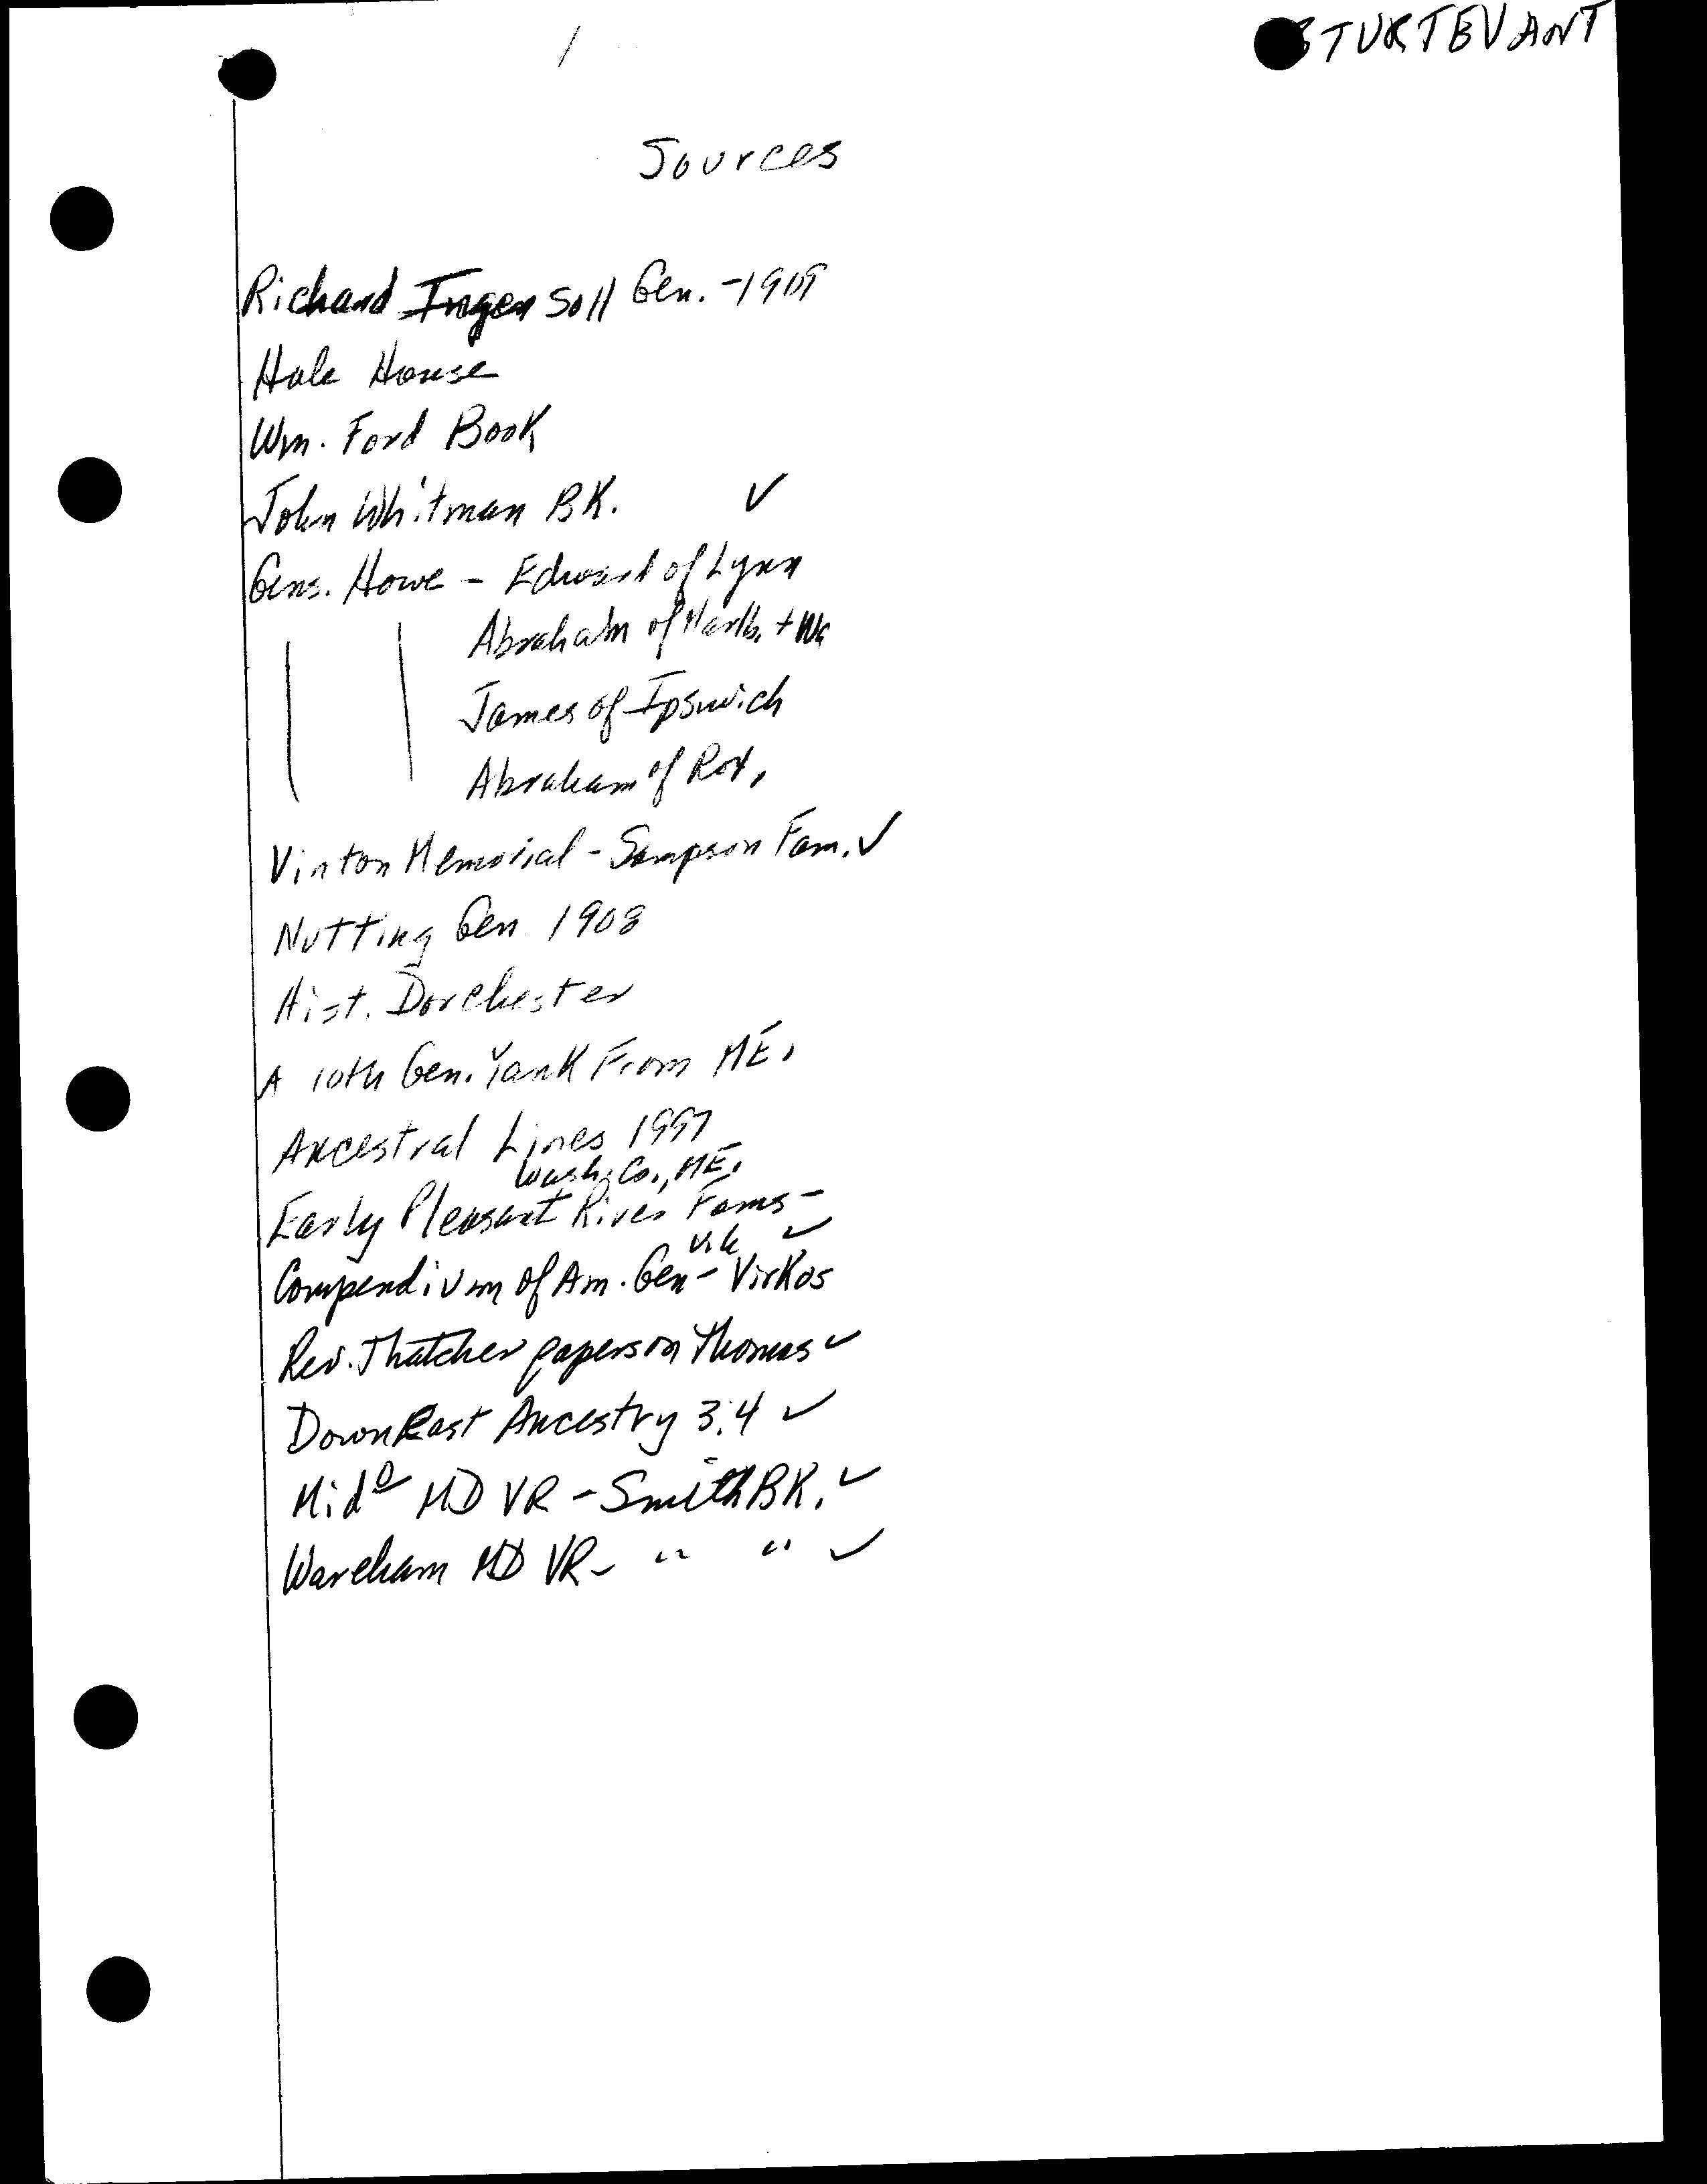 1
STURTEVANT
Sources
Richard Ingersoll Gen. - 1909
Hale House
Wm. Ford Book
John Whitman BK. ✓
Gens. Howe - Edward of Lynn
Abraham of Marlb. +
James of Ipswich
Abraham of Rox.
Vinton Memorial - Sampson Fam. ✓
Nutting Gen 1908
Hist. Dorchester
A 10th Gen. Yank From ME.
Ancestral Lines 1997
Wash. Co., ME.
Early Pleasant River Fams -
✓
Compendium of Am. Gen - Virkos
Rev. Thatcher papers on Thomas ✓
DownEast Ancestry 3:4 ✓
Mid⁰ MD VR - Smith BK. ✓
Wareham MD VR - " " ✓